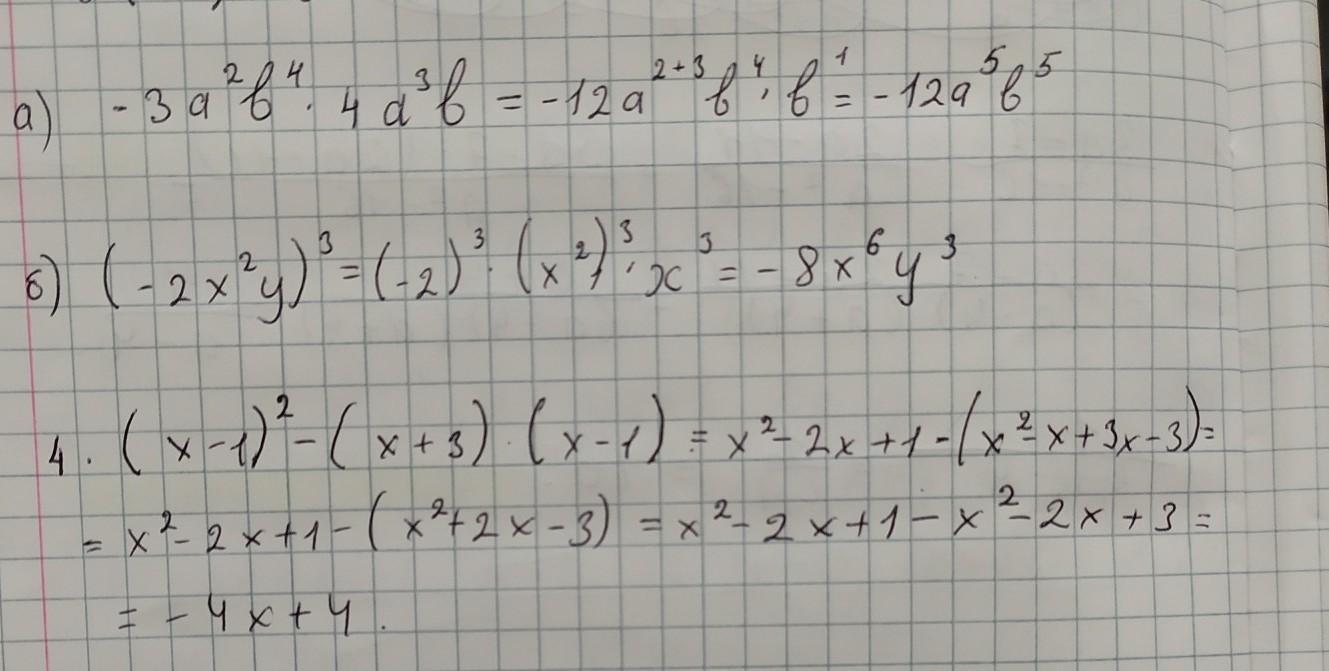 а) -3a²b⁴ · 4a³b = -12a²⁺³b⁴ · b¹ = -12a⁵b⁵
б) (-2x²y)³ = (-2)³ · (x²)³ · x³ = -8x⁶y³
4. (x-1)² - (x+3) · (x-1) = x² - 2x + 1 - (x² - x + 3x - 3) =
= x² - 2x + 1 - (x² + 2x - 3) = x² - 2x + 1 - x² - 2x + 3 =
= - 4x + 4.